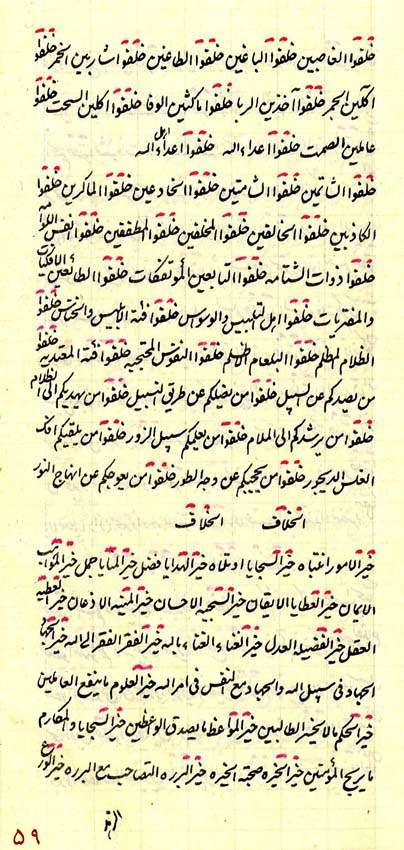 خلّفوا الغاصبین خلّفوا الباغین خلّفوا الطاغین خلّفوا شاربین الخمر خلّفوا
اکلین الخمر خلّفوا آخذین الربا خلّفوا ناکثین الوفا خلّفوا اکلین السحت خلّفوا
عاملین الصمت خلّفوا اعداء الله خلّفوا اعداء اهل الله
خلّفوا الشاتمین خلّفوا الشامتین خلّفوا الخادعین خلّفوا الماکرین خلّفوا
الکاذبین خلّفوا الخالفین خلّفوا المخلفین خلّفوا المطففین خلّفوا النفس اللوامه
خلّفوا ذوات الشتامه خلّفوا التابعین المؤتفکات خلّفوا الطائعین الآفکیات
والمفتریات خلّفوا اهل التلبیس والوسوس خلّفوا فئة الابلیس والخناس خلّفوا
الظلام المظلم خلّفوا البلعام الاظلم خلّفوا النفوس المحتجبه خلّفوا فئة المعتدیه خلّفوا
من یصدکم عن السبیل خلّفوا من یضلکم عن طریق السبیل خلّفوا من یهدیکم الی الظلام
خلّفوا من یرشدکم الی الملام خلّفوا من یعلمکم سبیل الزور خلّفوا من یلقیکم افک
الغلس الدیجور خلّفوا من یحجبکم عن وجه الطور خلّفوا من یعوجکم عن انهاج النور
الخلاف الخلاف
خیر الامور اغتباه خیر السجایا ادناه خیر الهدایا فضل خیر المنایا اجمل خیر المواهب
الایمان خیر العطایا الایقان خیر السجیه الاحسان خیر المنیه الاذعان خیر العطیه
العقل خیر الفضیله العدل خیر الغناء الغناء بالله خیر الفقر الفقر الی الله خیر الجهاد
الجهاد فی سبیل الله والجهاد مع النفس فی امر الله خیر العلوم ما ینفع العالمین
خیر الحکم ما لاخیر الطالبین خیر المواعظ ما یصدق الواعظین خیر السجایا والمکارم
ما یریح المؤمنین خیر الخیره صحبة الخیره خیر البرره التصاحب مع البرره خیر الورع
۵۹